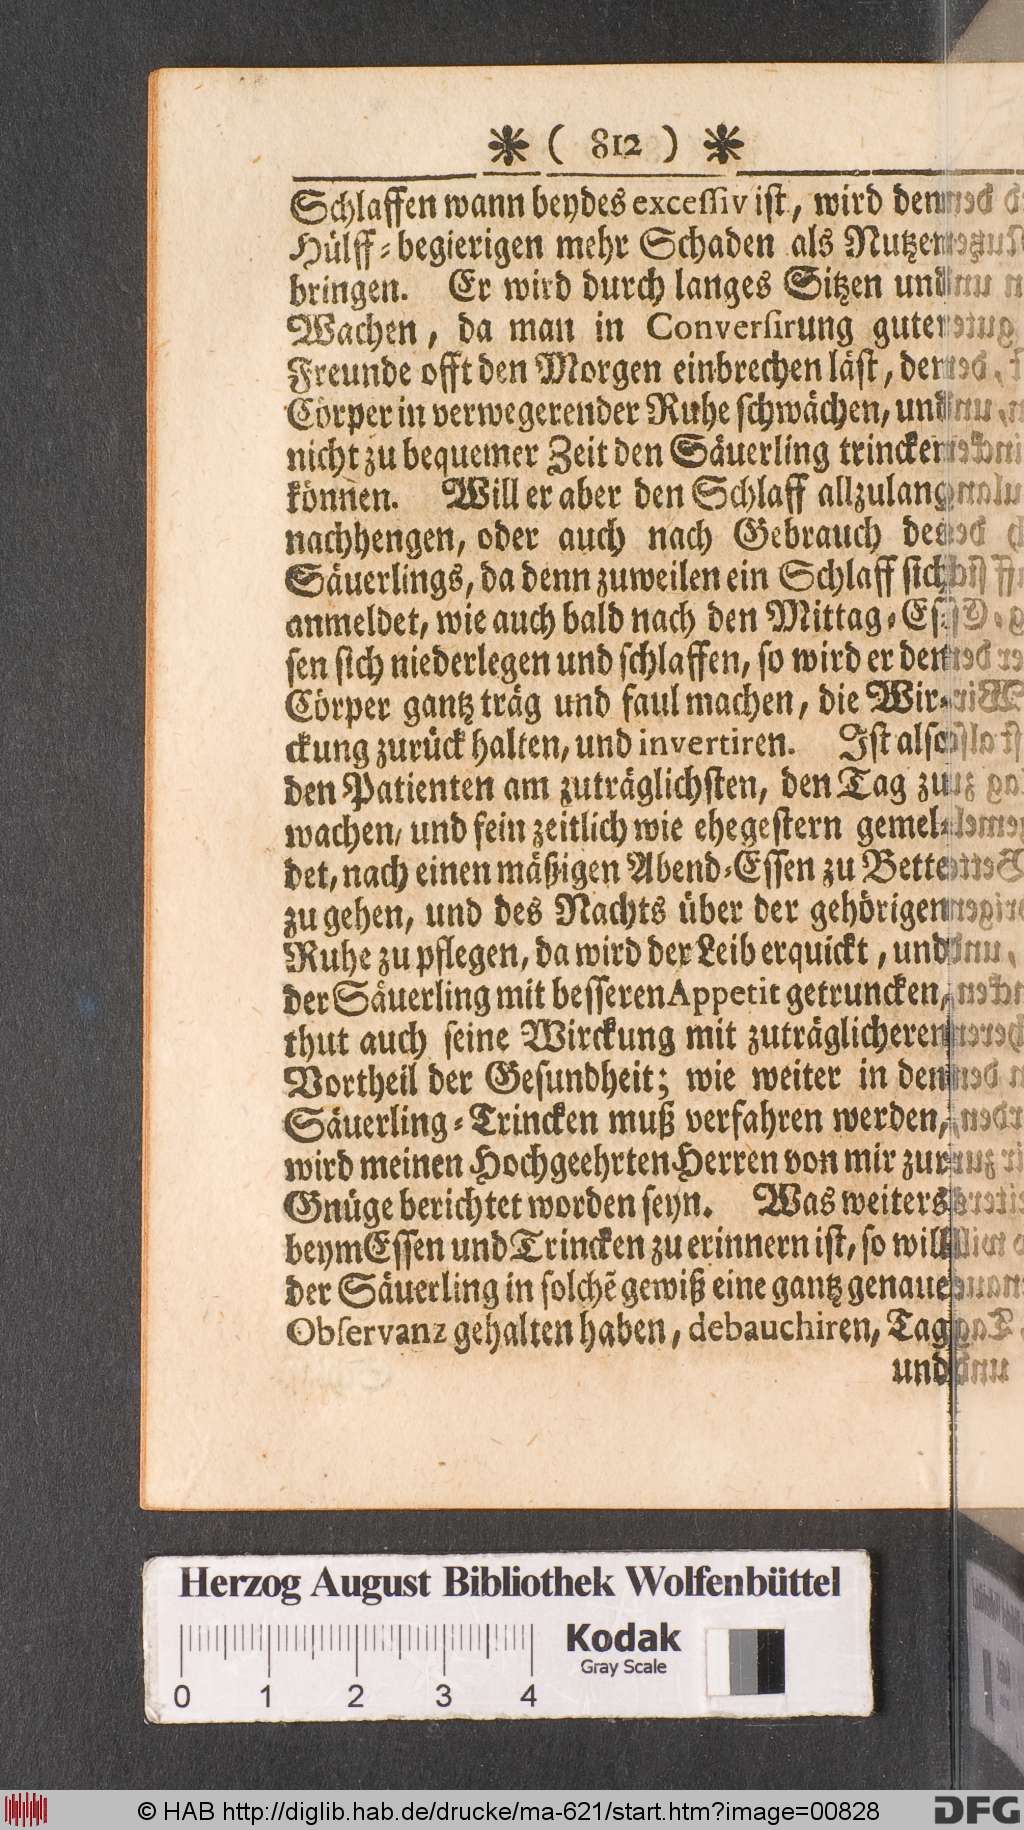 * ( 812 ) *
Schlaffen wann beydes excessiv ist, wird den
Hülff-begierigen mehr Schaden als Nutzen
bringen. Er wird durch langes Sitzen und
Wachen, da man in Conversirung guter
Freunde offt den Morgen einbrechen läst, den
Cörper in verwegerender Ruhe schwächen, und
nicht zu bequemer Zeit den Säuerling trincken
können. Will er aber den Schlaff allzulang
nachhengen, oder auch nach Gebrauch des
Säuerlings, da denn zuweilen ein Schlaff sich
anmeldet, wie auch bald nach den Mittag-Es-
sen sich niederlegen und schlaffen, so wird er den
Cörper gantz träg und faul machen, die Wir-
ckung zurück halten, und invertiren. Ist also
den Patienten am zuträglichsten, den Tag zu
wachen, und fein zeitlich wie ehegestern gemel-
det, nach einen mäßigen Abend-Essen zu Bette
zu gehen, und des Nachts über der gehörigen
Ruhe zu pflegen, da wird der Leib erquickt, und
der Säuerling mit besseren Appetit getruncken,
thut auch seine Wirckung mit zuträglicheren
Vortheil der Gesundheit; wie weiter in den
Säuerling-Trincken muß verfahren werden,
wird meinen Hochgeehrten Herren von mir zur
Gnüge berichtet worden seyn. Was weiters
beym Essen und Trincken zu erinnern ist, so will
der Säuerling in solchē gewiß eine gantz genaue
Observanz gehalten haben, debauchiren, Tag
und
Herzog August Bibliothek Wolfenbüttel
Kodak
Gray Scale
0 1 2 3 4
© HAB http://diglib.hab.de/drucke/ma-621/start.htm?image=00828
DFG